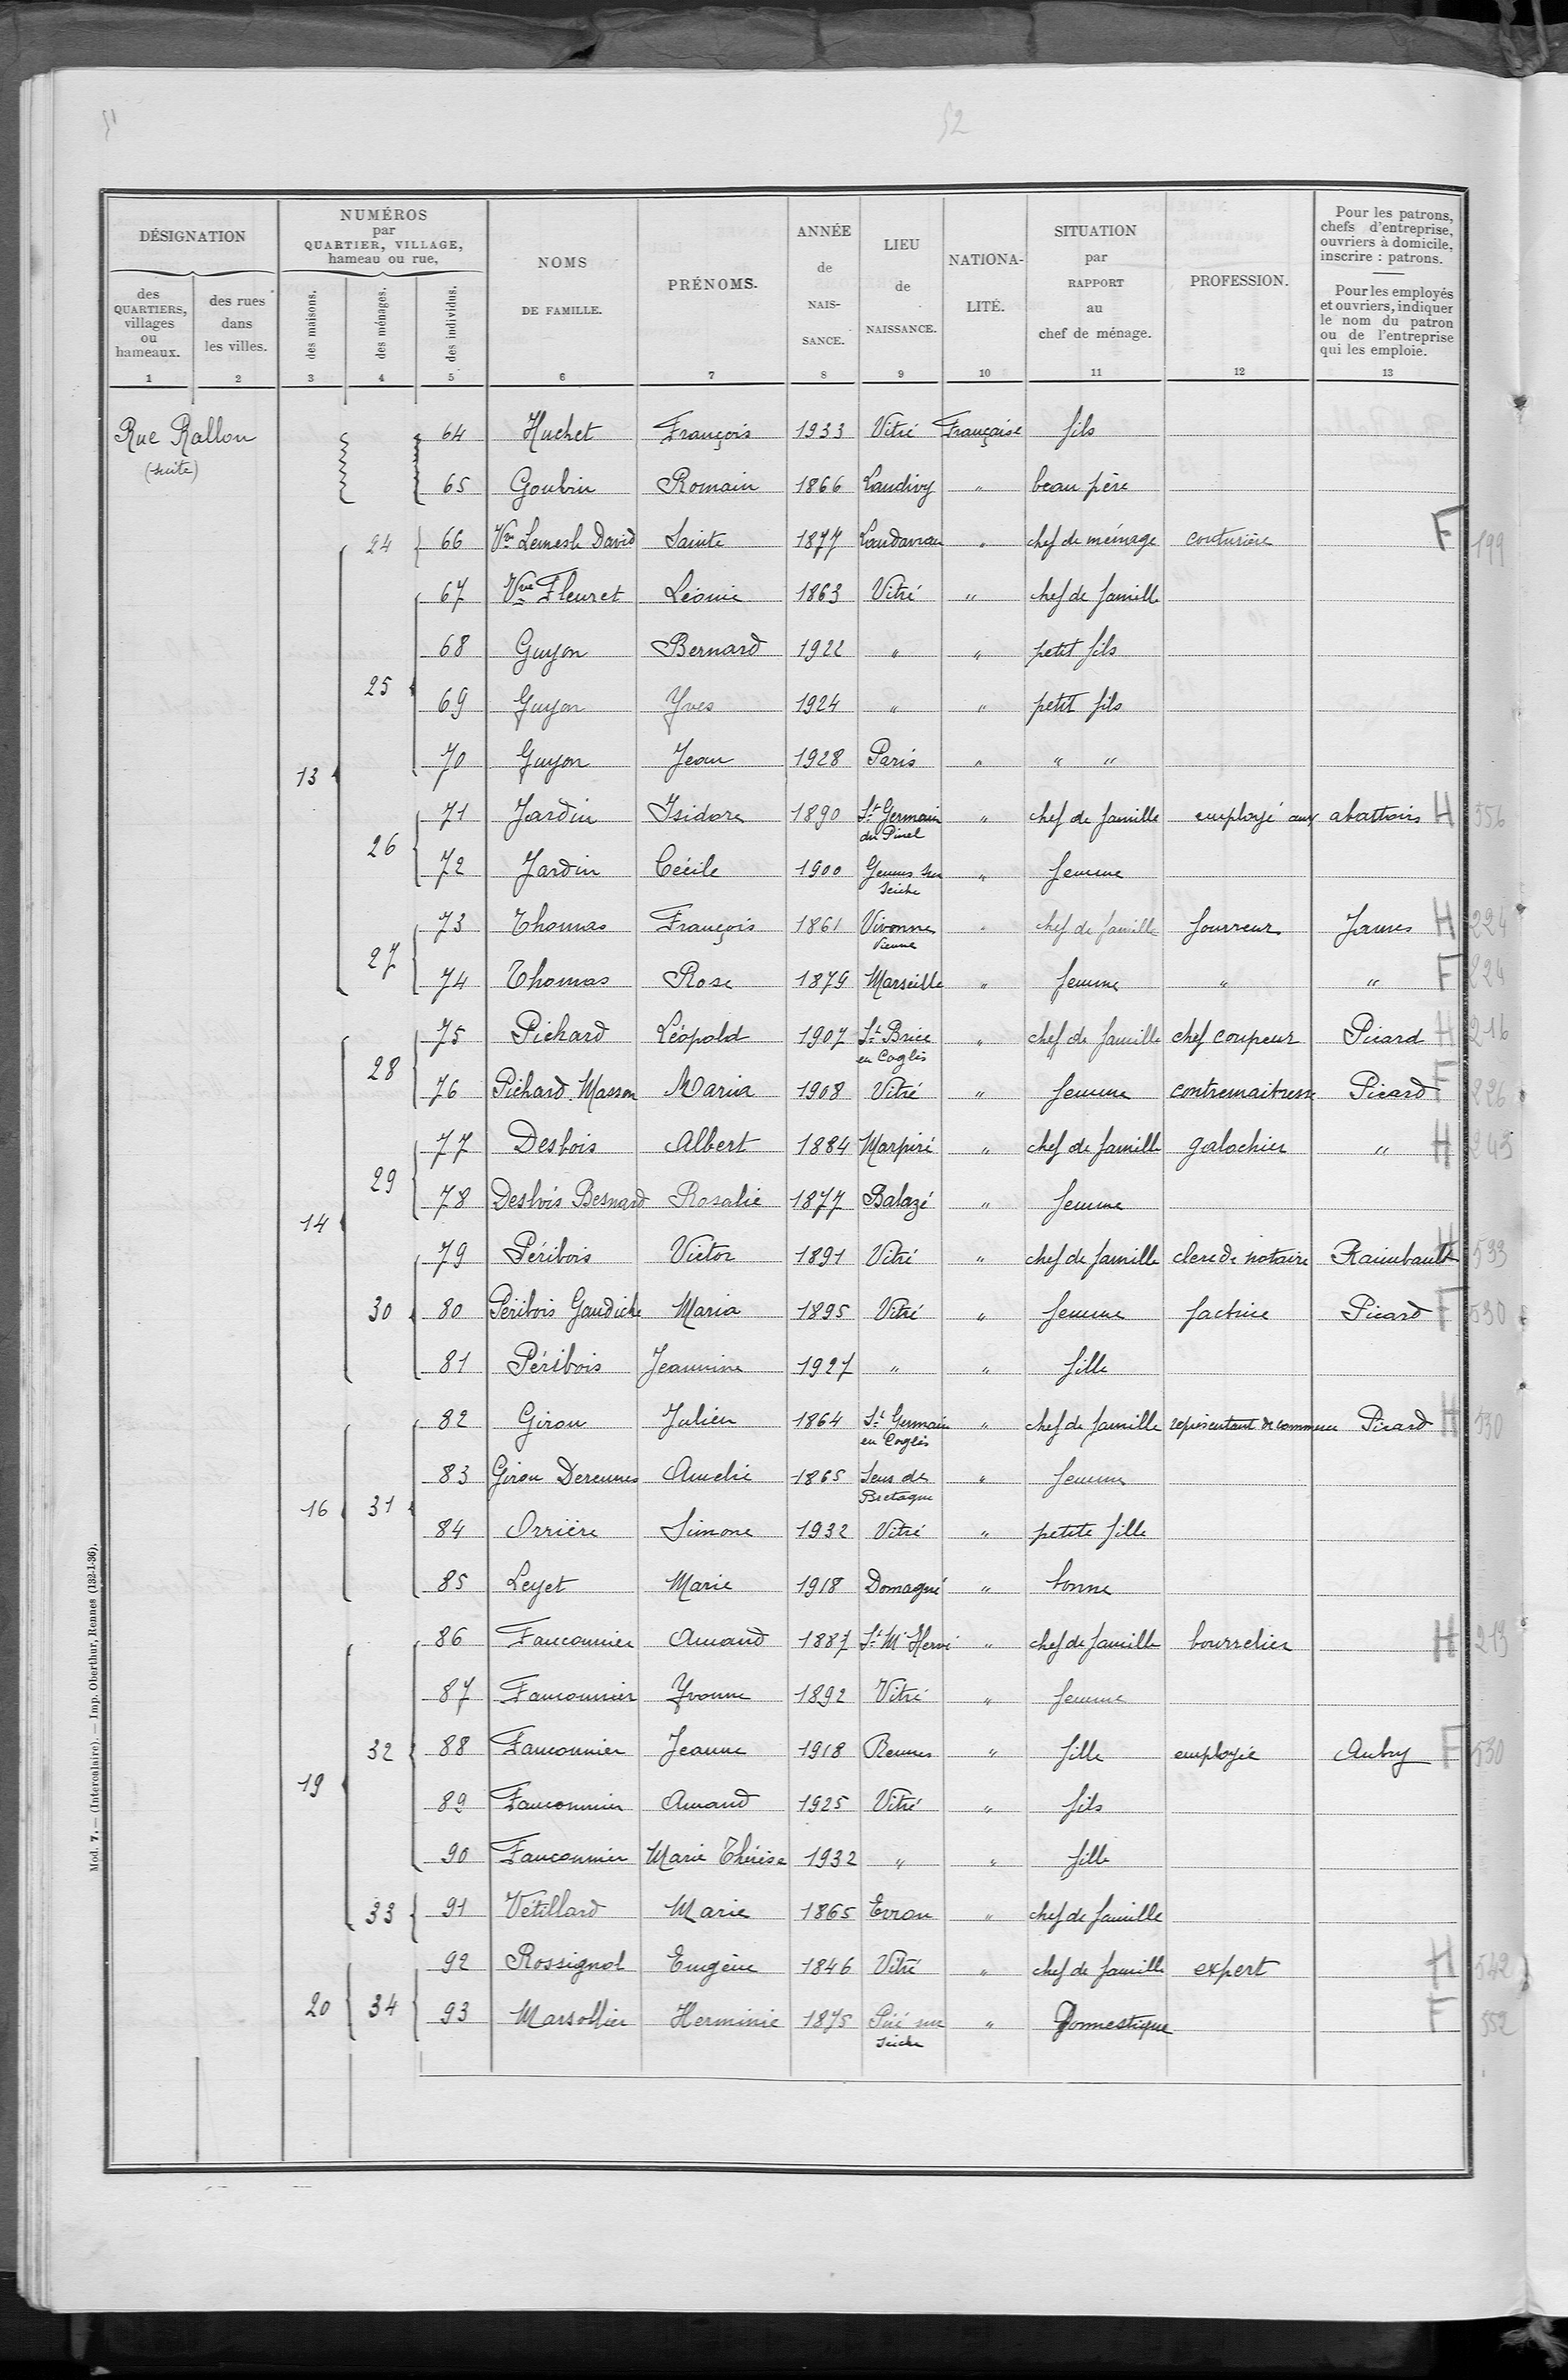 52
DÉSIGNATION
des QUARTIERS, villages ou hameaux.
des rues dans les villes.
NUMÉROS par QUARTIER, VILLAGE, hameau ou rue,
des maisons.
des ménages.
des individus.
NOMS DE FAMILLE.
PRÉNOMS.
ANNÉE de NAIS- SANCE.
LIEU de NAISSANCE.
NATIONA- LITÉ.
SITUATION par RAPPORT au chef de ménage.
PROFESSION.
Pour les patrons, chefs d'entreprise, ouvriers à domicile, inscrire : patrons.
Pour les employés et ouvriers, indiquer le nom du patron ou de l'entreprise qui les emploie.
1 2 3 4 5 6 7 8 9 10 11 12 13
Rue Rallon (suite)
64 Huchet François 1933 Vitré Française fils
65 Goubin Romain 1866 Landivy " beau père
24 66 Vve David Sainte 1877 " chef de ménage couturière F 199
67 Vve Fleuret Léonie 1863 Vitré " chef de famille
68 Guyon Bernard 1922 " " petit fils
25
69 Guyon Yves 1924 " " petit fils
13 70 Guyon Jean 1928 Paris " " "
71 Jardin Isidore 1890 St Germain du Pinel " chef de famille employé aux abattoirs H 556
26
72 Jardin Cécile 1900 Gennes sur Seiche " femme
73 Thomas François 1861 Vivonne Vienne " chef de famille fourreur James H 224
27
74 Thomas Rose 1879 Marseille " femme " " F 224
75 Pichard Léopold 1907 St Brice en Coglès " chef de famille chef coupeur Picard H 216
28
76 Pichard Masson Maria 1908 Vitré " femme contremaitresse Picard F 226
77 Desbois Albert 1884 Marpiré " chef de famille galochier " H 243
29
78 Desbois Besnard Rosalie 1877 Balazé " femme
14
79 Péribois Victor 1891 Vitré " chef de famille clerc de notaire Raimbault H 533
30 80 Péribois Gaudiche Maria 1895 Vitré " femme factrice Picard F 530
81 Péribois Jeannine 1927 " " fille
82 Girou Julien 1864 St Germain en Coglès " chef de famille représentant de commerce Picard H 530
83 Girou Derennes Amélie 1865 Sens de Bretagne " femme
16 31
84 Orrière Simone 1932 Vitré " petite fille
85 Leyet Marie 1918 Domagné " bonne
86 Fauconnier Amand 1887 St M. Hervé " chef de famille bourrelier H 213
87 Fauconnier Yvonne 1892 Vitré " femme
32 88 Fauconnier Jeanne 1918 Rennes " fille employée Aubry F 530
19
89 Fauconnier Amand 1925 Vitré " fils
90 Fauconnier Marie Thérèse 1932 " " fille
33 91 Vétillard Marie 1865 Evron " chef de famille
92 Rossignol Eugène 1846 Vitré " chef de famille expert H 542
20 34 93 Marsollier Herminie 1875 Piré sur Seiche " Domestique F 552
Mod. 7. — (Intercalaire). — Imp. Oberthur, Rennes (132-1-36).